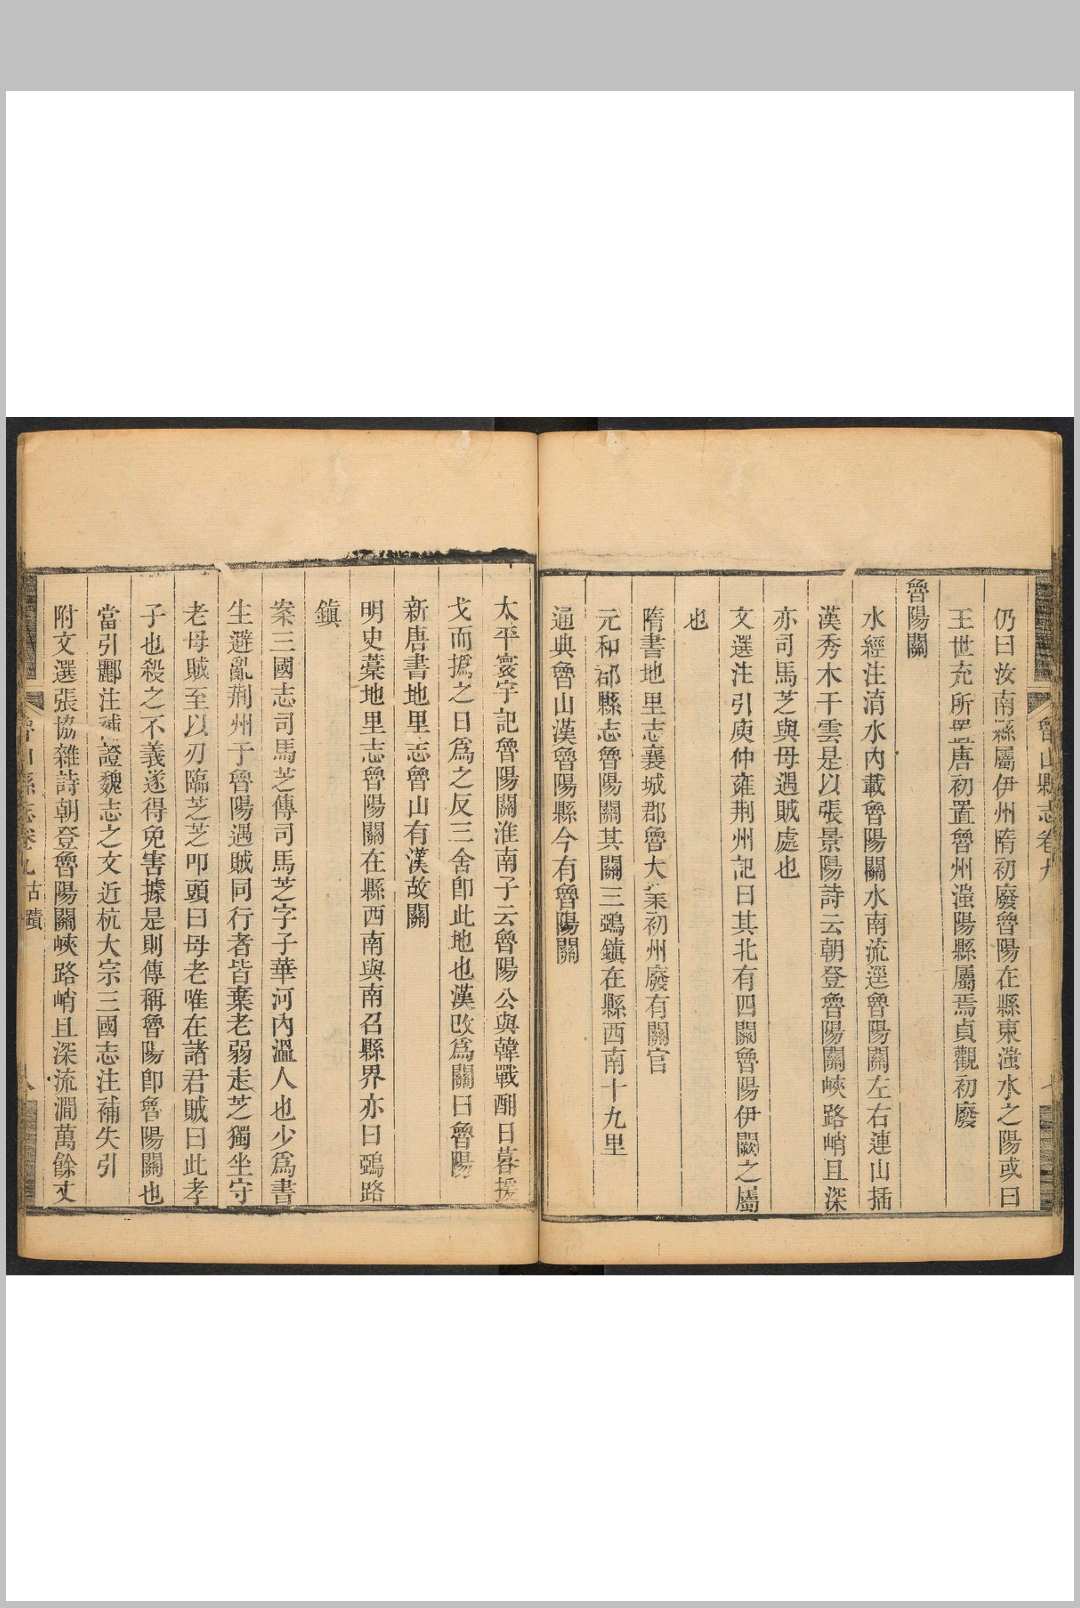 魯山縣志卷九
仍曰汝南縣屬伊州隋初廢魯陽在縣東滍水之陽或曰
王世充所置唐初置魯州滍陽縣屬焉貞觀初廢
魯陽關
水經注淯水內載魯陽關水南流逕魯陽關左右連山插
漢秀木干雲是以張景陽詩云朝登魯陽關峽路峭且深
亦司馬芝與母遇賊處也
文選注引庾仲雍荆州記曰其北有四關魯陽伊闕之屬
也
隋書地里志襄城郡魯大業初州廢有關官
元和郡縣志魯陽關其關三鵶鎮在縣西南十九里
通典魯山漢魯陽縣今有魯陽關
太平寰宇記魯陽關淮南子云魯陽公與韓戰酣日暮援
戈而撝之日爲之反三舍卽此地也漢改爲關曰魯陽
新唐書地里志魯山有漢故關
明史藁地里志魯陽關在縣西南與南召縣界亦曰鵶路
鎮
案三國志司馬芝傳司馬芝字子華河內溫人也少爲書
生避亂荆州于魯陽遇賊同行者皆棄老弱走芝獨坐守
老母賊至以刃臨芝芝叩頭曰母老唯在諸君賊曰此孝
子也殺之不義遂得免害據是則傳稱魯陽卽魯陽關也
當引酈注補證魏志之文近杭大宗三國志注補失引
附文選張協雜詩朝登魯陽關峽路峭且深流澗萬餘丈
魯山縣志卷九 古蹟 八